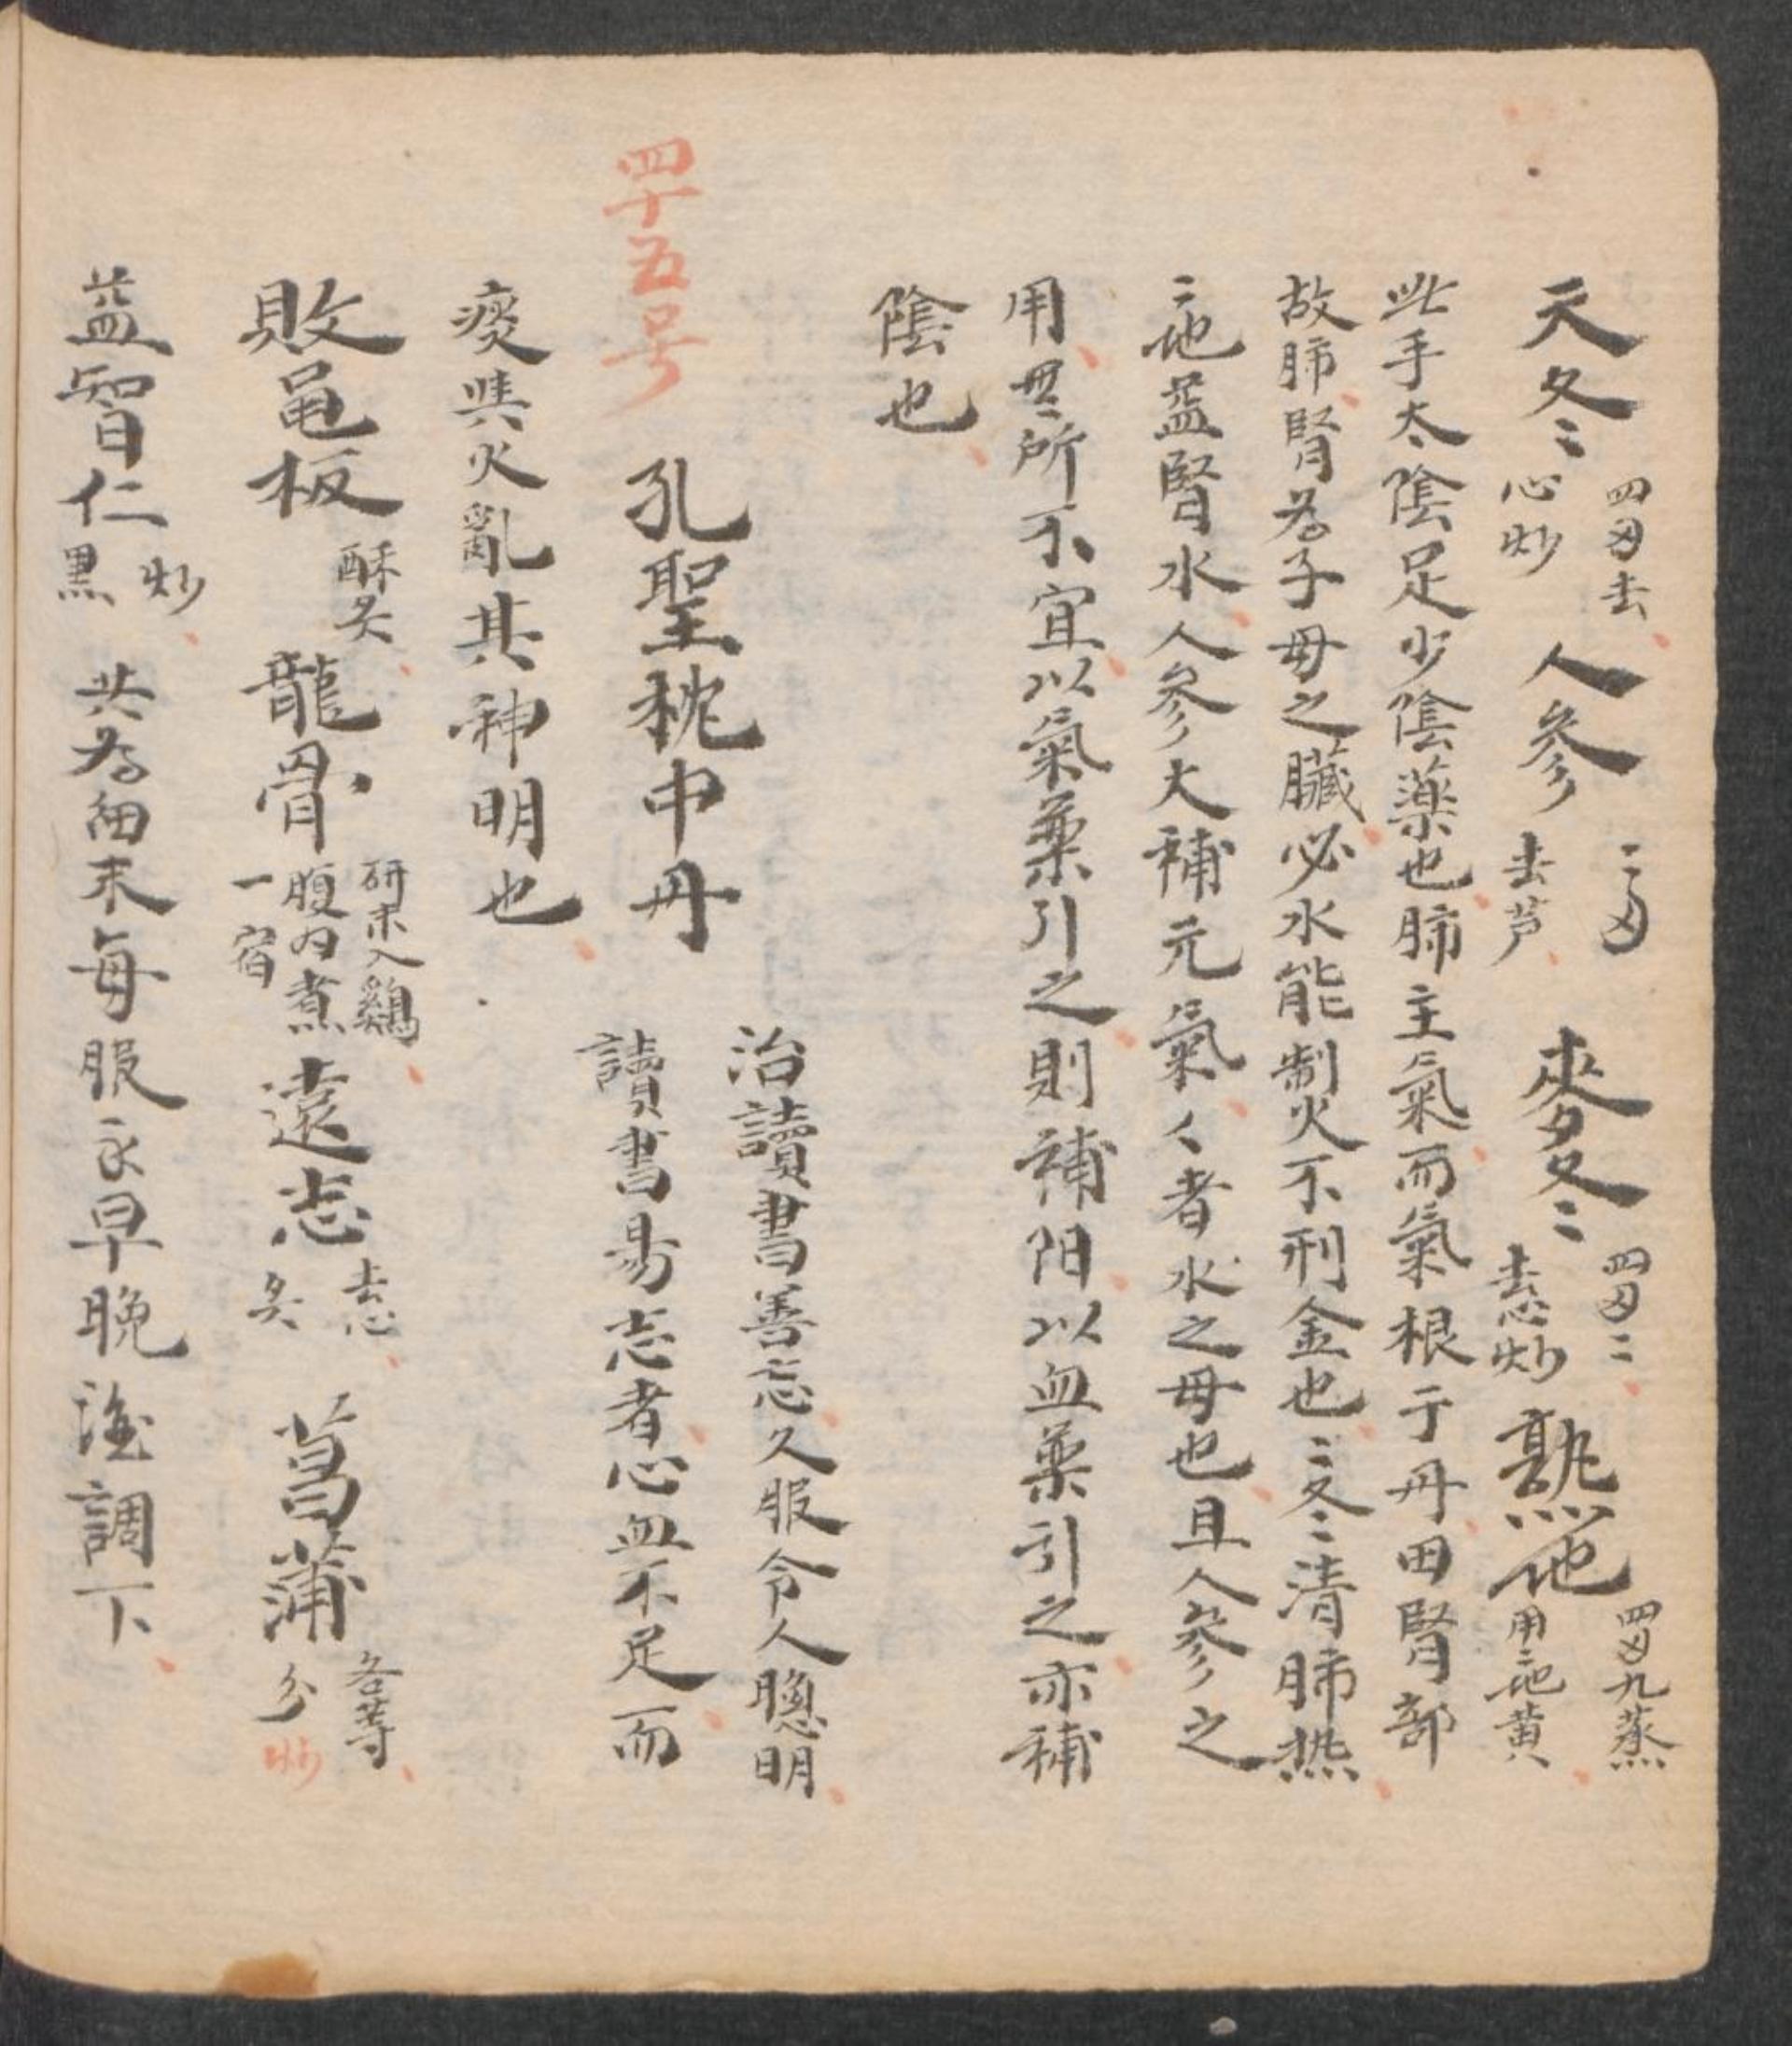 天冬四兩去心炒 人參二兩去芦 麥冬四兩二去心炒 熟地四兩九蒸用二地黄
此手太陰足少陰藥也肺主氣而氣根于丹田腎部
故肺腎為子母之臟必水能制火不刑金也二冬清肺熱
二地益腎水人參大補元氣〻者水之母也且人參之
用無所不宜以氣藥引之則補阳以血藥引之亦補
陰也
四十五号 孔聖枕中丹 治讀書善忘久服令人聰明
讀書易忘者心血不足而
痰與火亂其神明也
敗黾板酥炙 龍骨研末入鷄腹内煮一宿 遠志去心炙 菖蒲各等分炒
益智仁炒黑 共為細末每服 早晚 調下